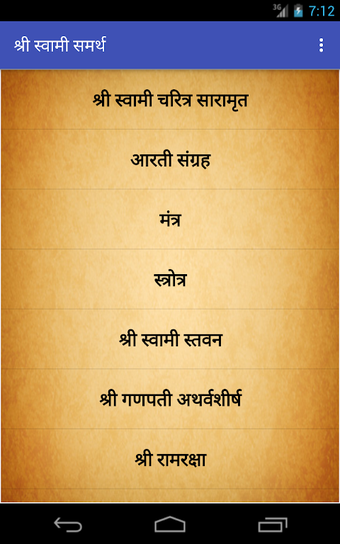 3G 7:12
श्री स्वामी समर्थ
श्री स्वामी चरित्र सारामृत
आरती संग्रह
मंत्र
स्त्रोत्र
श्री स्वामी स्तवन
श्री गणपती अथर्वशीर्ष
श्री रामरक्षा